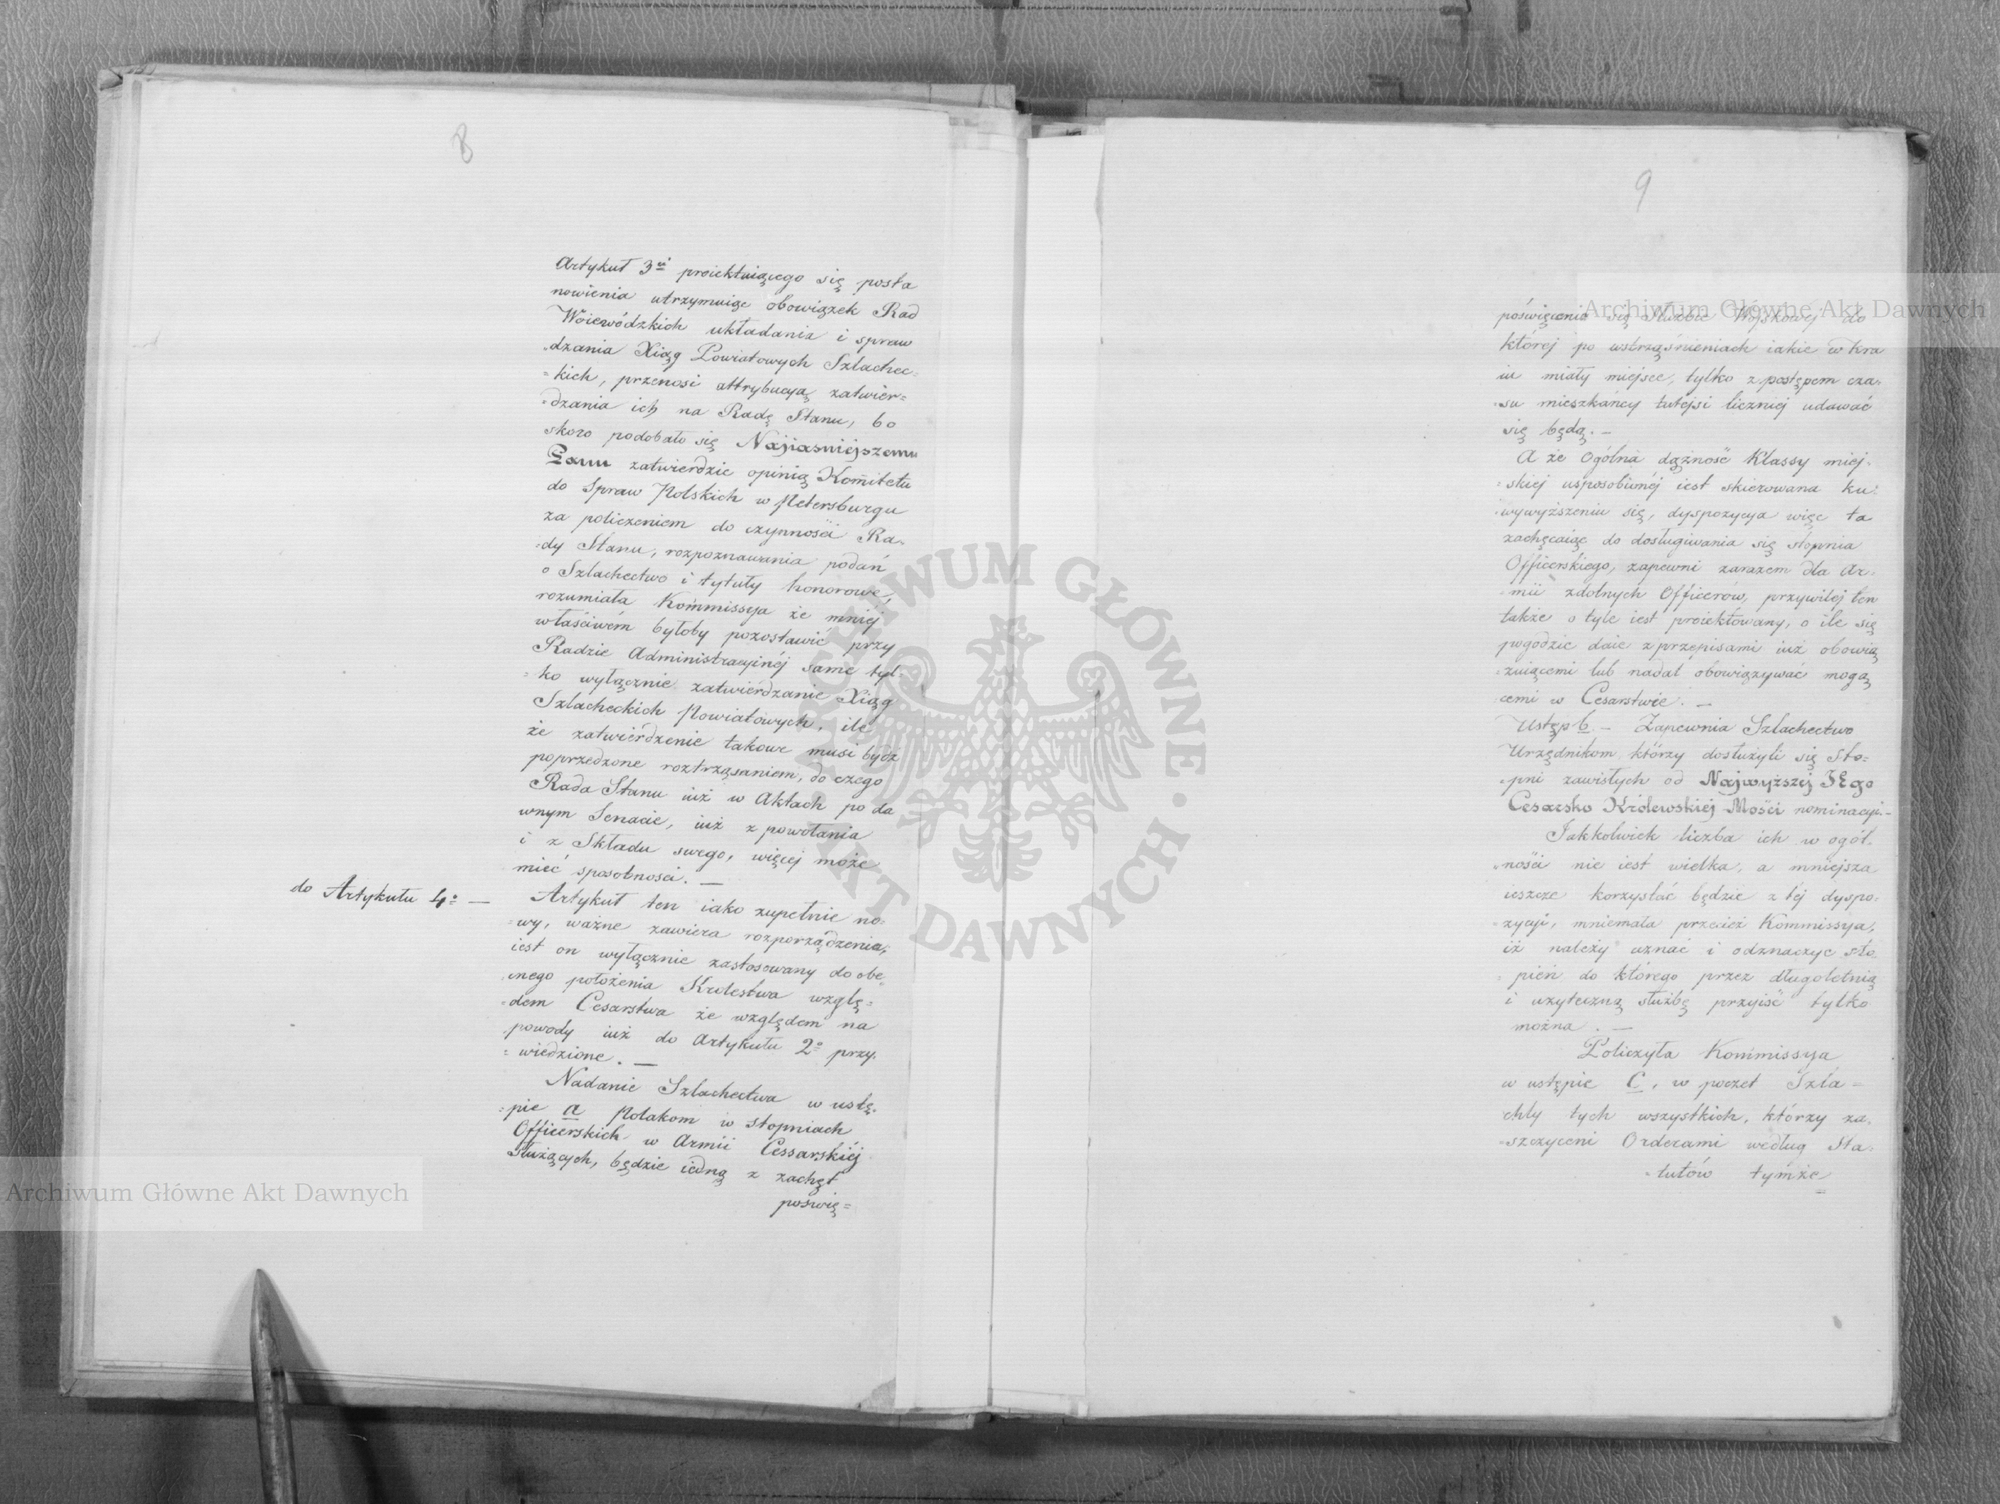 8
Artykuł 3ci proiektuiącego się posta
nowienia utrzymuiąc obowiązek Rad
Woiewódzkich układania i spraw
dzania Xiąg Powiatowych Szlachec=
=kich, przenosi attrybucyą zatwier=
=dzania ich na Radę Stanu, bo
skoro podobało się Najiaśniejszemu
Panu zatwierdzić opinią Komitetu
do Spraw Polskich w Petersburgu
za policzeniem do czynności Ra=
=dy Stanu, rozpoznawania podań
o Szlachectwo i tytuły honorowe,
rozumiała Kommissya że mniéj
właściwém byłoby pozostawić przy
Radzie Administracyinéj same tyl=
=ko wyłącznie zatwiérdzanie Xiąg
Szlacheckich Powiatowych, ile
że zatwiérdzenie takowe musi bydź
poprzedzone roztrząsaniem, do czego
Rada Stanu iuż w Aktach po da
wnym Senacie, iuż z powołania
i z Składu swego, więcéj może
mieć sposobności. —
do Artykułu 4o —
Artykuł ten iako zupełnie no
=wy, ważne zawiera rozporządzenia,
iest on wyłącznie zastosowany do obe=
=cnego położenia Królestwa wzglę=
=dem Cesarstwa ze względem na
powody iuż do Artykułu 2o przy=
=wiedzione. —
Nadanie Szlachectwa w ustę=
=pie a Polakom w stopniach
Officerskich w Armii Cessarskiéj
służących, będzie iedną z zachęt
poświę=
9
poświęcenia się Służbie Woyskowéj do
której po wstrząśnieniach iakie w kra
iu miały miejsce, tylko z postępem cza=
=su mieszkańcy tutejsi liczniéj udawać
się będą. —
A że Ogólna dążność Klassy miej=
=skiej usposobionéj iest skierowana ku
wywyższeniu się, dyspozycya więc ta
zachęcaiąc do dosługiwania się stopnia
Officerskiego, zapewni zarazem dla Ar=
=mii zdolnych Officerów, przywilej ten
także o tyle iest proiektowany, o ile się
pogodzić daie z przepisami iuż obowią
=zuiącemi lub nadal obowiązywać mogą
cemi w Cesarstwie. —
Ustęp b — Zapewnia Szlachectwo
Urzędnikom którzy dosłużyli się sto=
=pni zawisłych od Najwyższéj JEgo
Cesarsko Królewskiéj Mości nominacyi. —
Jakkolwiek liczba ich w ogól=
=ności nie iest wielka, a mniejsza
ieszcze korzystać będzie z téj dyspo=
zycyi, mniemała przecież Kommissya,
iż należy uznać i odznaczyć sto=
=pień do którego przez długoletnią
i użyteczną służbę przyiść tylko
można. —
Policzyła Kommissya
w ustępie C, w poczet Szla=
=chty tych wszystkich, którzy za=
=szczyceni Orderami według Sta=
=tutów tymże
Archiwum Główne Akt Dawnych
Archiwum Główne Akt Dawnych
ARCHIWUM GŁÓWNE · AKT DAWNYCH ·